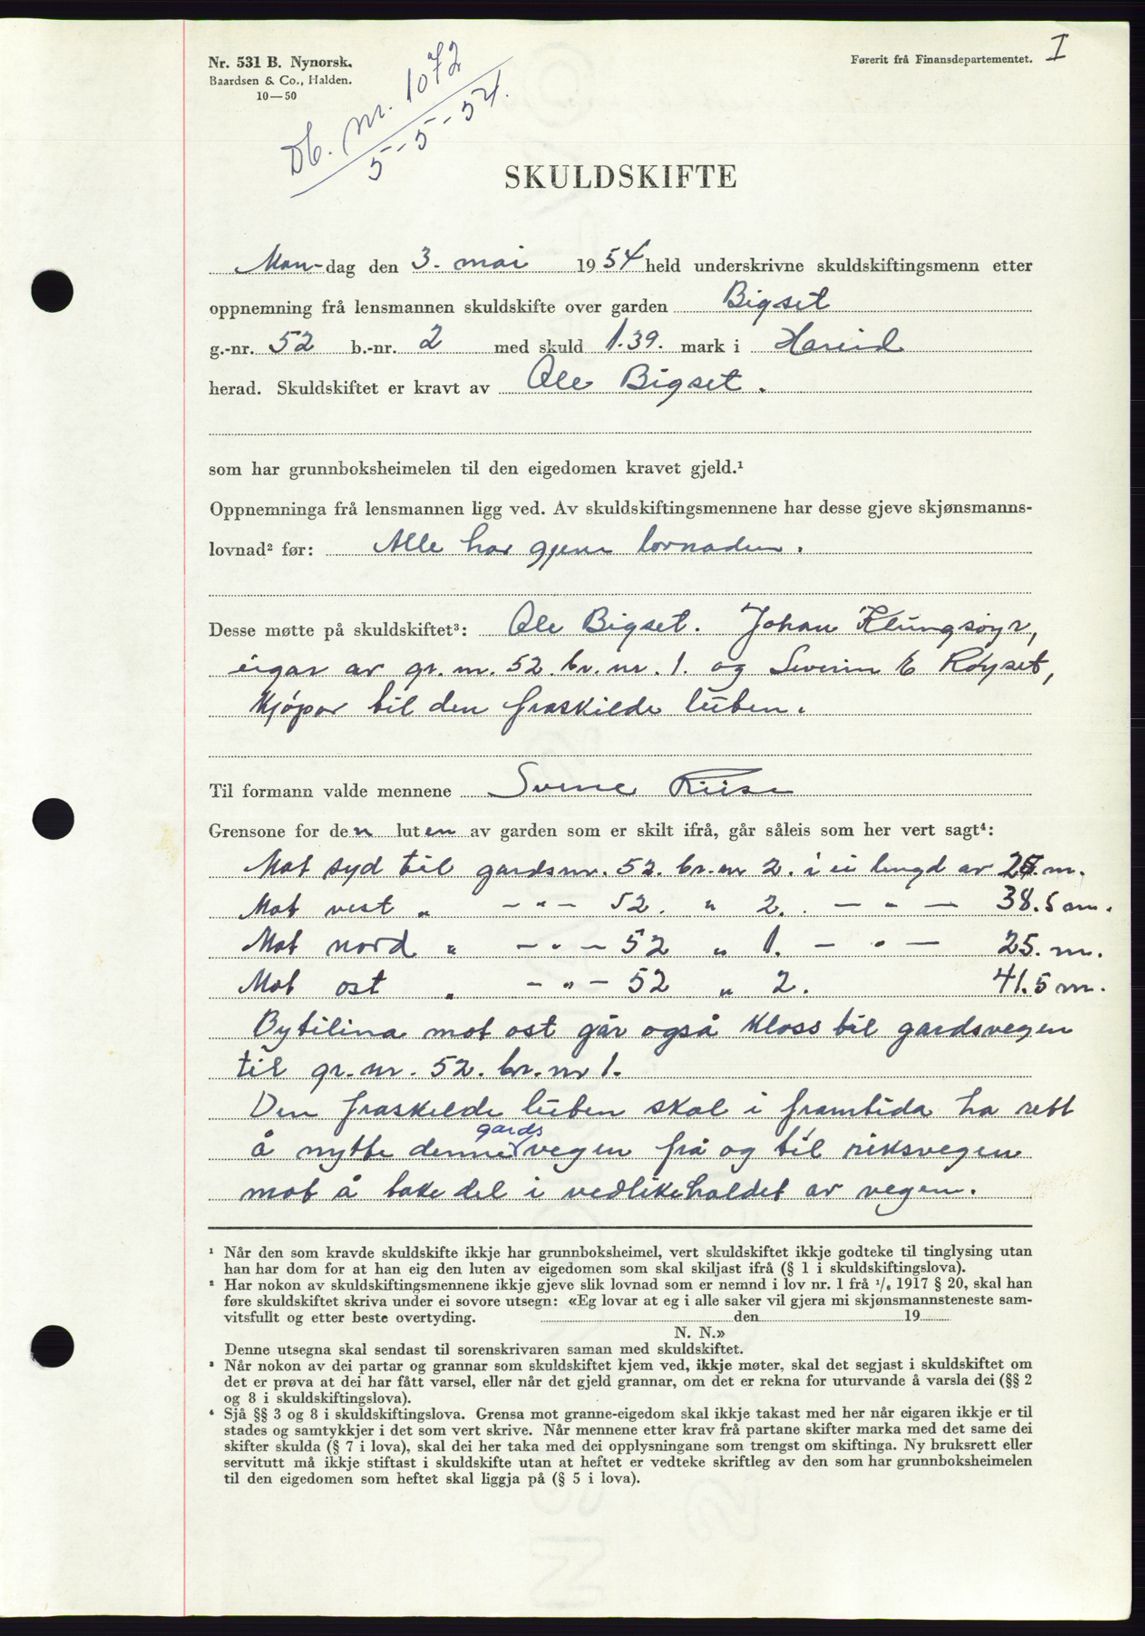 Nr. 531 B. Nynorsk.
Baardsen & Co., Halden.
10—50
Førerit frå Finansdepartementet.
I
Db. nr. 1072
5-5-54.
SKULDSKIFTE
Mon-dag den 3. mai 1954 held underskrivne skuldskiftingsmenn etter
oppnemning frå lensmannen skuldskifte over garden Bigset
g.-nr. 52 b.-nr. 2 med skuld 1.39. mark i Hareid
herad. Skuldskiftet er kravt av Ole Bigset.
som har grunnboksheimelen til den eigedomen kravet gjeld.¹
Oppnemninga frå lensmannen ligg ved. Av skuldskiftingsmennene har desse gjeve skjønsmanns-
lovnad² før: Alle har gjeve lovnaden.
Desse møtte på skuldskiftet³: Ole Bigset. Johan Klungsøyr,
eigar av gr. nr. 52. br. nr. 1. og Severin E Røyset,
Kjøpar til den fraskilde luten.
Til formann valde mennene Sverre Riise
Grensone for den luten av garden som er skilt ifrå, går såleis som her vert sagt⁴:
Mot syd til gardsnr. 52. br. nr 2. i ei lengd av 27. m.
Mot vest „ — „ — 52. „ 2. — „ — 38.5 m.
Mot nord „ — „ — 52 „ 1. — „ — 25. m.
Mot ost „ — „ — 52 „ 2. 41.5 m.
Bytilina mot ost går også kloss til gardsvegen
til gr. nr. 52. br. nr 1.
Den fraskilde luten skal i framtida ha rett
å nytte denne gardsvegen frå og til riksvegen
mot å take del i vedlikehaldet av vegen.
¹ Når den som kravde skuldskifte ikkje har grunnboksheimel, vert skuldskiftet ikkje godteke til tinglysing utan
han har dom for at han eig den luten av eigedomen som skal skiljast ifrå (§ 1 i skuldskiftingslova).
² Har nokon av skuldskiftingsmennene ikkje gjeve slik lovnad som er nemnd i lov nr. 1 frå ¹/₆ 1917 § 20, skal han
føre skuldskiftet skriva under ei sovore utsegn: «Eg lovar at eg i alle saker vil gjera mi skjønsmannsteneste sam-
vitsfullt og etter beste overtyding. den 19
N. N.»
Denne utsegna skal sendast til sorenskrivaren saman med skuldskiftet.
³ Når nokon av dei partar og grannar som skuldskiftet kjem ved, ikkje møter, skal det segjast i skuldskiftet om
det er prøva at dei har fått varsel, eller når det gjeld grannar, om det er rekna for uturvande å varsla dei (§§ 2
og 8 i skuldskiftingslova).
⁴ Sjå §§ 3 og 8 i skuldskiftingslova. Grensa mot granne-eigedom skal ikkje takast med her når eigaren ikkje er til
stades og samtykkjer i det som vert skrive. Når mennene etter krav frå partane skifter marka med det same dei
skifter skulda (§ 7 i lova), skal dei her taka med dei opplysningane som trengst om skiftinga. Ny bruksrett eller
servitutt må ikkje stiftast i skuldskifte utan at heftet er vedteke skriftleg av den som har grunnboksheimelen
til den eigedomen som heftet skal liggja på (§ 5 i lova).